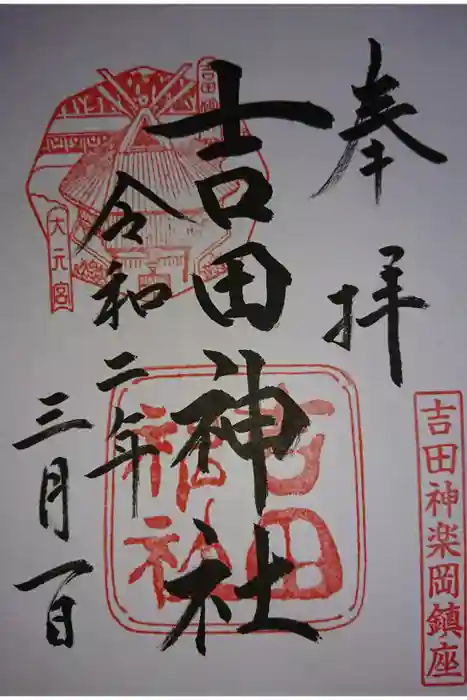 奉拝
吉田神社
令和二年
三月一日
大元宮
吉田神社
吉田神楽岡鎮座